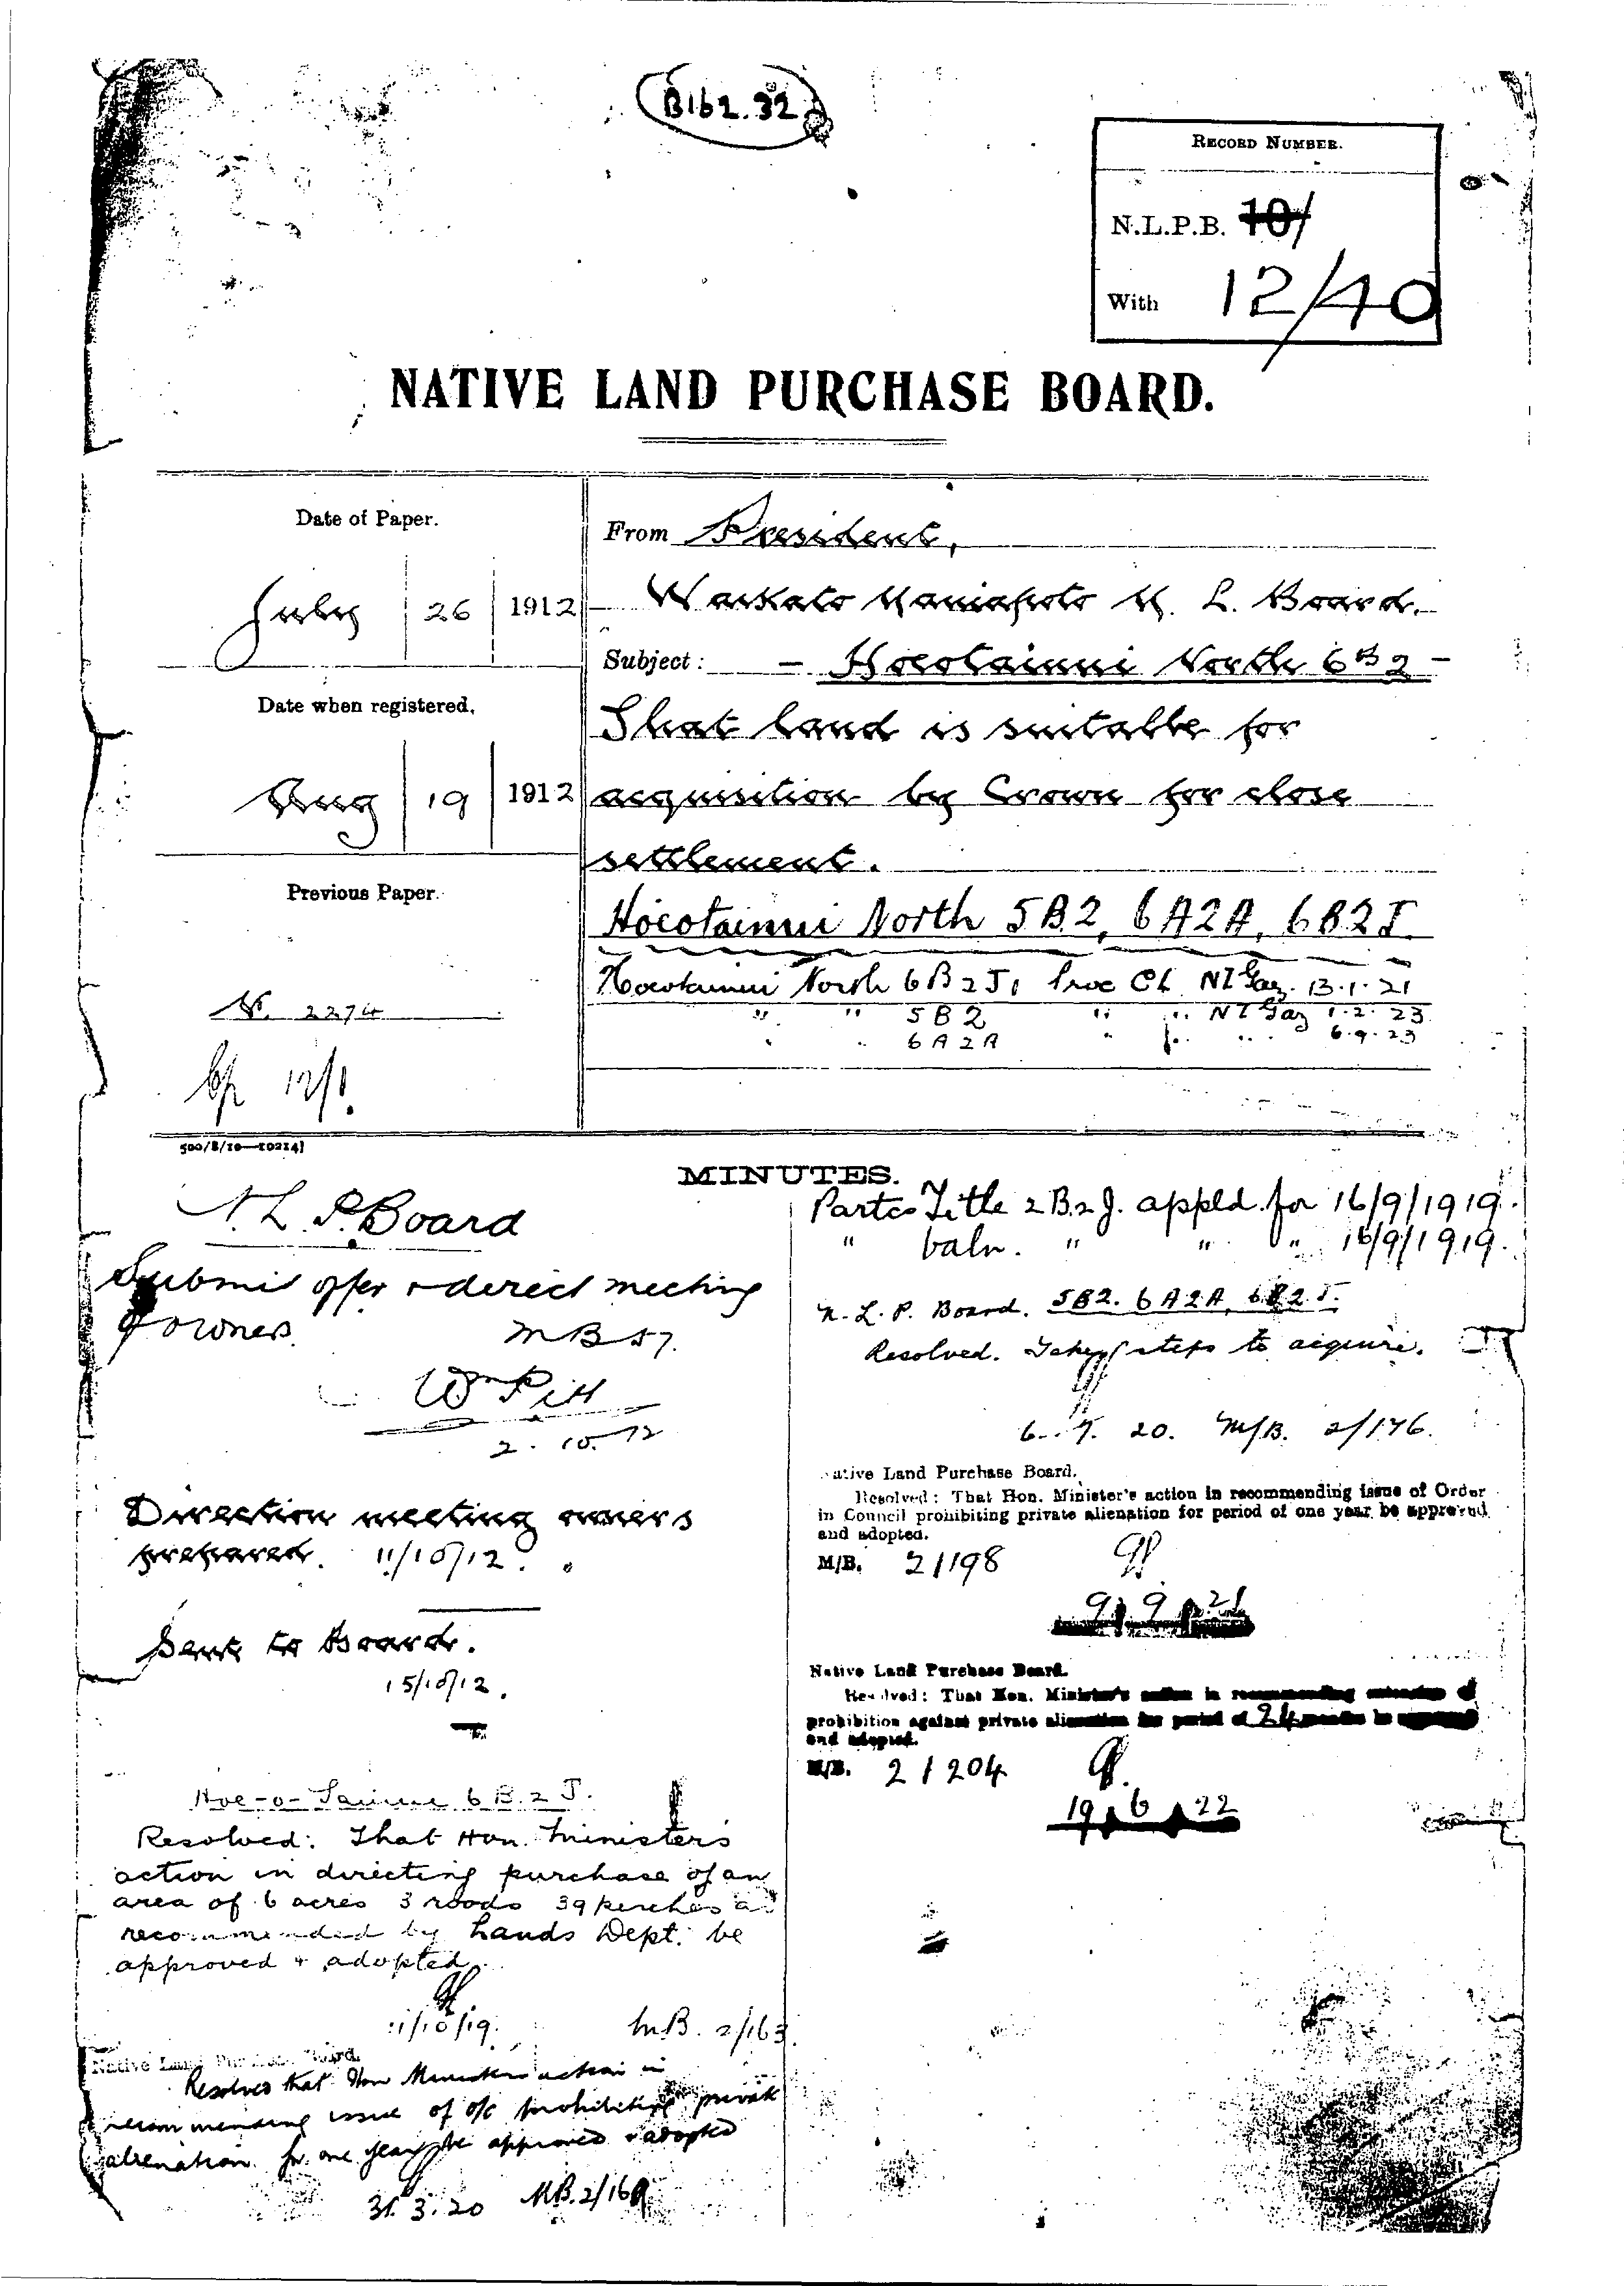 B162.32
RECORD NUMBER.
N.L.P.B. 10/
With 12/40
NATIVE LAND PURCHASE BOARD.
Date of Paper.
July 26 1912
Date when registered.
Aug 19 1912
Previous Paper.
N. 2274
12/1.
500/8/10—10214]
From President,
Waikato Maniapoto M. L. Board.
Subject: - Hoeotainui North 6B2 -
That land is suitable for
acquisition by Crown for close
settlement.
Hoeotainui North 5B2, 6A2A, 6B2J.
Hoeotainui North 6B2J1 Proc Cl. NZ Gaz. 13.1.21
" " 5B2 " " NZ Gaz 1.2.23
" " 6A2A " " 6.9.23
MINUTES.
N.L.P. Board
Submit offer & direct meeting
of owners.
MB 57.
Wm Pitt
2.10.12
Direction meeting owners
prepared. 11/10/12.
Sent to Board.
15/10/12.
Hoe-o-Tainui 6B.2J.
Resolved: That Hon. Minister's
action in directing purchase of an
area of 6 acres 3 roods 39 perches as
recommended by Lands Dept. be
approved & adopted.
11/10/19. M.B. 2/163.
Native Land Purchase Board.
Resolved that Hon Minister's action in
recommending issue of O/C prohibiting private
alienation for one year be approved & adopted
31.3.20 MB.2/169
Title 2B2J. appld. for 16/9/1919.
" baln. " " " 16/9/1919.
N.L.P. Board. 5B2. 6A2A, 6B2J.
Resolved. Take steps to acquire.
6.7.20. M/B. 2/176.
Native Land Purchase Board.
Resolved: That Hon. Minister's action in recommending issue of Order
in Council prohibiting private alienation for period of one year be approved
and adopted.
M/B. 2/198
9 9 21
Native Land Purchase Board.
Resolved: That Hon. Minister's action in recommending extension of
prohibition against private alienation for period of 24 months be approved
and adopted.
M/B. 2/204
19 6 22